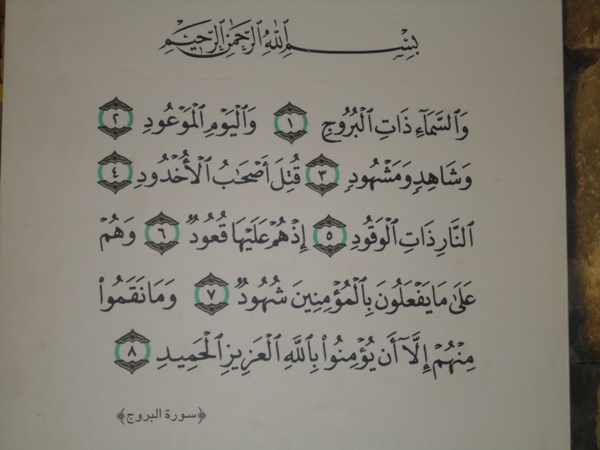 بِسْمِ اللَّهِ الرَّحْمَٰنِ الرَّحِيمِ
وَالسَّمَآءِ ذَاتِ الْبُرُوجِ ١ وَالْيَوْمِ الْمَوْعُودِ ٢
وَشَاهِدٍ وَمَشْهُودٍ ٣ قُتِلَ أَصْحَٰبُ الْأُخْدُودِ ٤
النَّارِ ذَاتِ الْوَقُودِ ٥ إِذْ هُمْ عَلَيْهَا قُعُودٌ ٦ وَهُمْ
عَلَىٰ مَا يَفْعَلُونَ بِالْمُؤْمِنِينَ شُهُودٌ ٧ وَمَا نَقَمُوا۟
مِنْهُمْ إِلَّآ أَن يُؤْمِنُوا۟ بِاللَّهِ الْعَزِيزِ الْحَمِيدِ ٨
﴿سورة البروج﴾